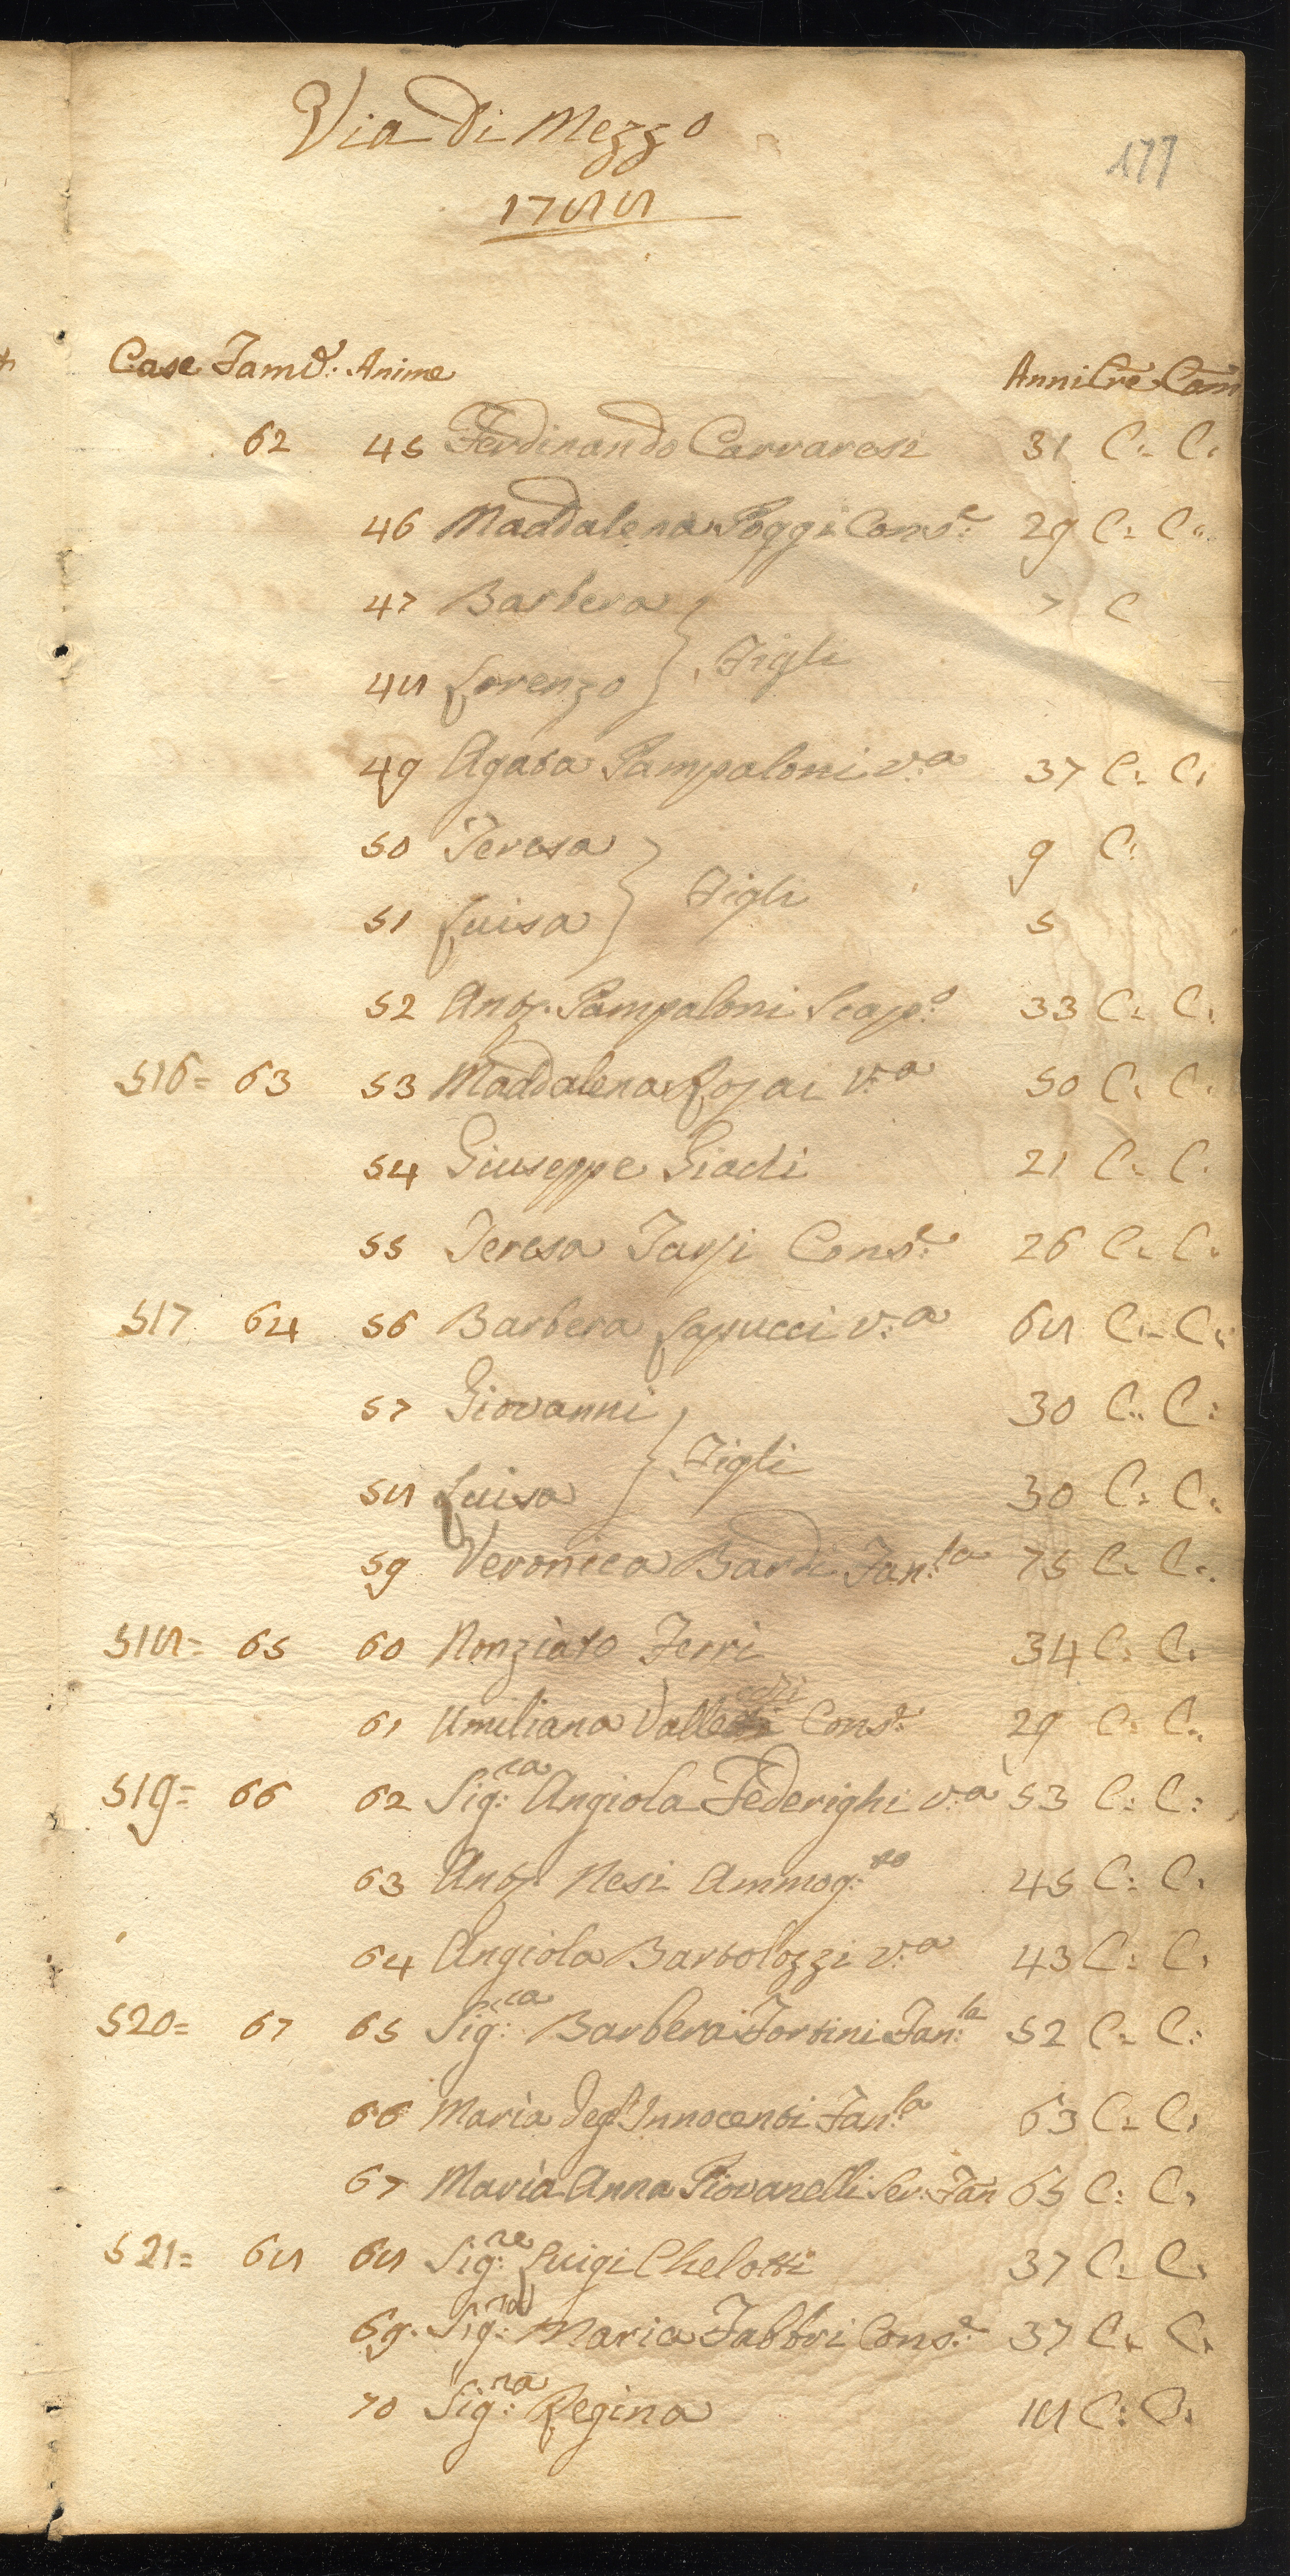 Via di Mezzo
177
1788
Case Famᵉ: Anime Anni Cre Com
62 45 Ferdinando Carraresi 31 C: C:
46 Maddalena Poggi Consᵉ: 29 C: C:
47 Barbera 7 C
Figli
48 Lorenzo
49 Agata Pampaloni v:ᵃ 37 C: C:
50 Teresa 9 C:
Figli
51 Luisa 5
52 Antᵒ. Pampaloni Scapᵒ: 33 C: C:
516= 63 53 Maddalena v:ᵃ 50 C: C:
54 Giuseppe 21 C: C:
55 Teresa Consᵉ: 26 C: C:
517 64 56 Barbera Lapucci v:ᵃ 68 C: C:
57 Giovanni 30 C: C:
Figli
58 Luisa 30 C: C:
59 Veronica Bardi Fan:ˡᵃ 75 C: C:
518= 65 60 Nonziato Ferri 34 C: C:
61 Umiliana Consᵉ: 29 C: C:
519= 66 62 Sig:ʳᵃ Angiola Federighi v:ᵃ 53 C: C:
63 Antᵒ. Nesi Ammog:ᵗᵒ 45 C: C:
64 Angiola Bartolozzi v:ᵃ 43 C: C:
520= 67 65 Sig:ʳᵃ Barbera Fortini Fan:ˡᵃ 52 C: C:
66 Maria degl'Innocenti Fan:ˡᵃ 63 C: C:
67 Maria Anna Piovanelli Ser: Fan 65 C: C:
521= 68 68 Sig:ʳᵉ Luigi Chelotti 37 C: C:
69. Sig:ʳᵃ Maria Fabbri Consᵉ: 37 C: C:
70 Sig:ʳᵃ Regina 18 C: C: